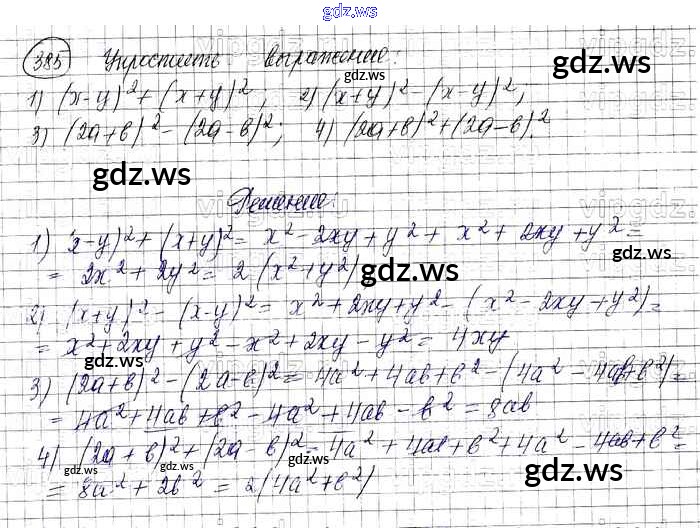 gdz.ws
385 Упростить выражение:
1) (x-y)²+(x+y)²; 2) (x+y)²-(x-y)²;
3) (2a+b)²-(2a-b)²; 4) (2a+b)²+(2a-b)².
Решение:
1) (x-y)²+(x+y)²= x²-2xy+y²+x²+2xy+y²=
= 2x²+2y²= 2(x²+y²)
2) (x+y)²-(x-y)²= x²+2xy+y²-(x²-2xy+y²)=
= x²+2xy+y²-x²+2xy-y²= 4xy
3) (2a+b)²-(2a-b)²= 4a²+4ab+b²-(4a²-4ab+b²)=
= 4a²+4ab+b²-4a²+4ab-b²=8ab
4) (2a+b)²+(2a-b)²=4a²+4ab+b²+4a²-4ab+b²=
= 8a²+2b²=2(4a²+b²)
gdz.ws
gdz.ws
gdz.ws
gdz.ws
gdz.ws
gdz.ws
gdz.ws
gdz.ws